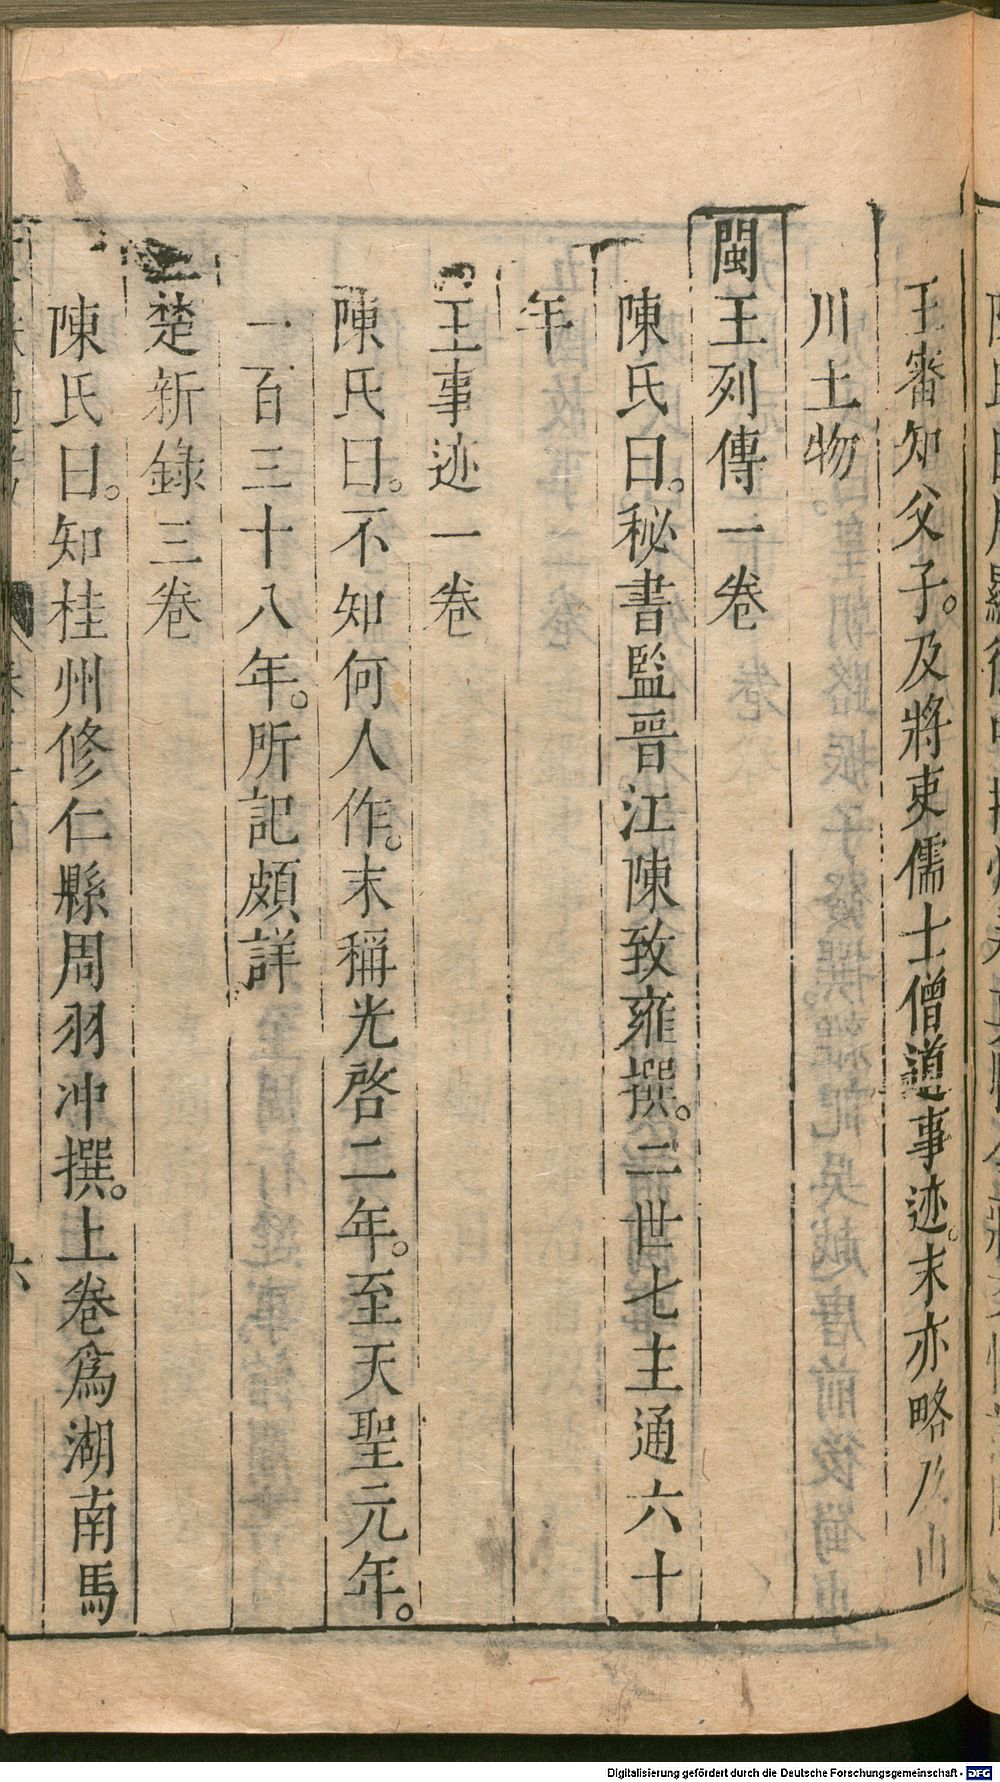 王審知父子。及將吏儒士僧道事迹。末亦略及山
川土物
閩王列傳一卷
陳氏曰。秘書監晉江陳致雍撰。二世七主通六十
年
王事迹一卷
陳氏曰。不知何人作。末稱光啓二年。至天聖元年。
一百三十八年。所記頗詳
楚新錄三卷
陳氏曰。知桂州修仁縣周羽冲撰。上卷爲湖南馬
六
Digitalisierung gefördert durch die Deutsche Forschungsgemeinschaft - DFG